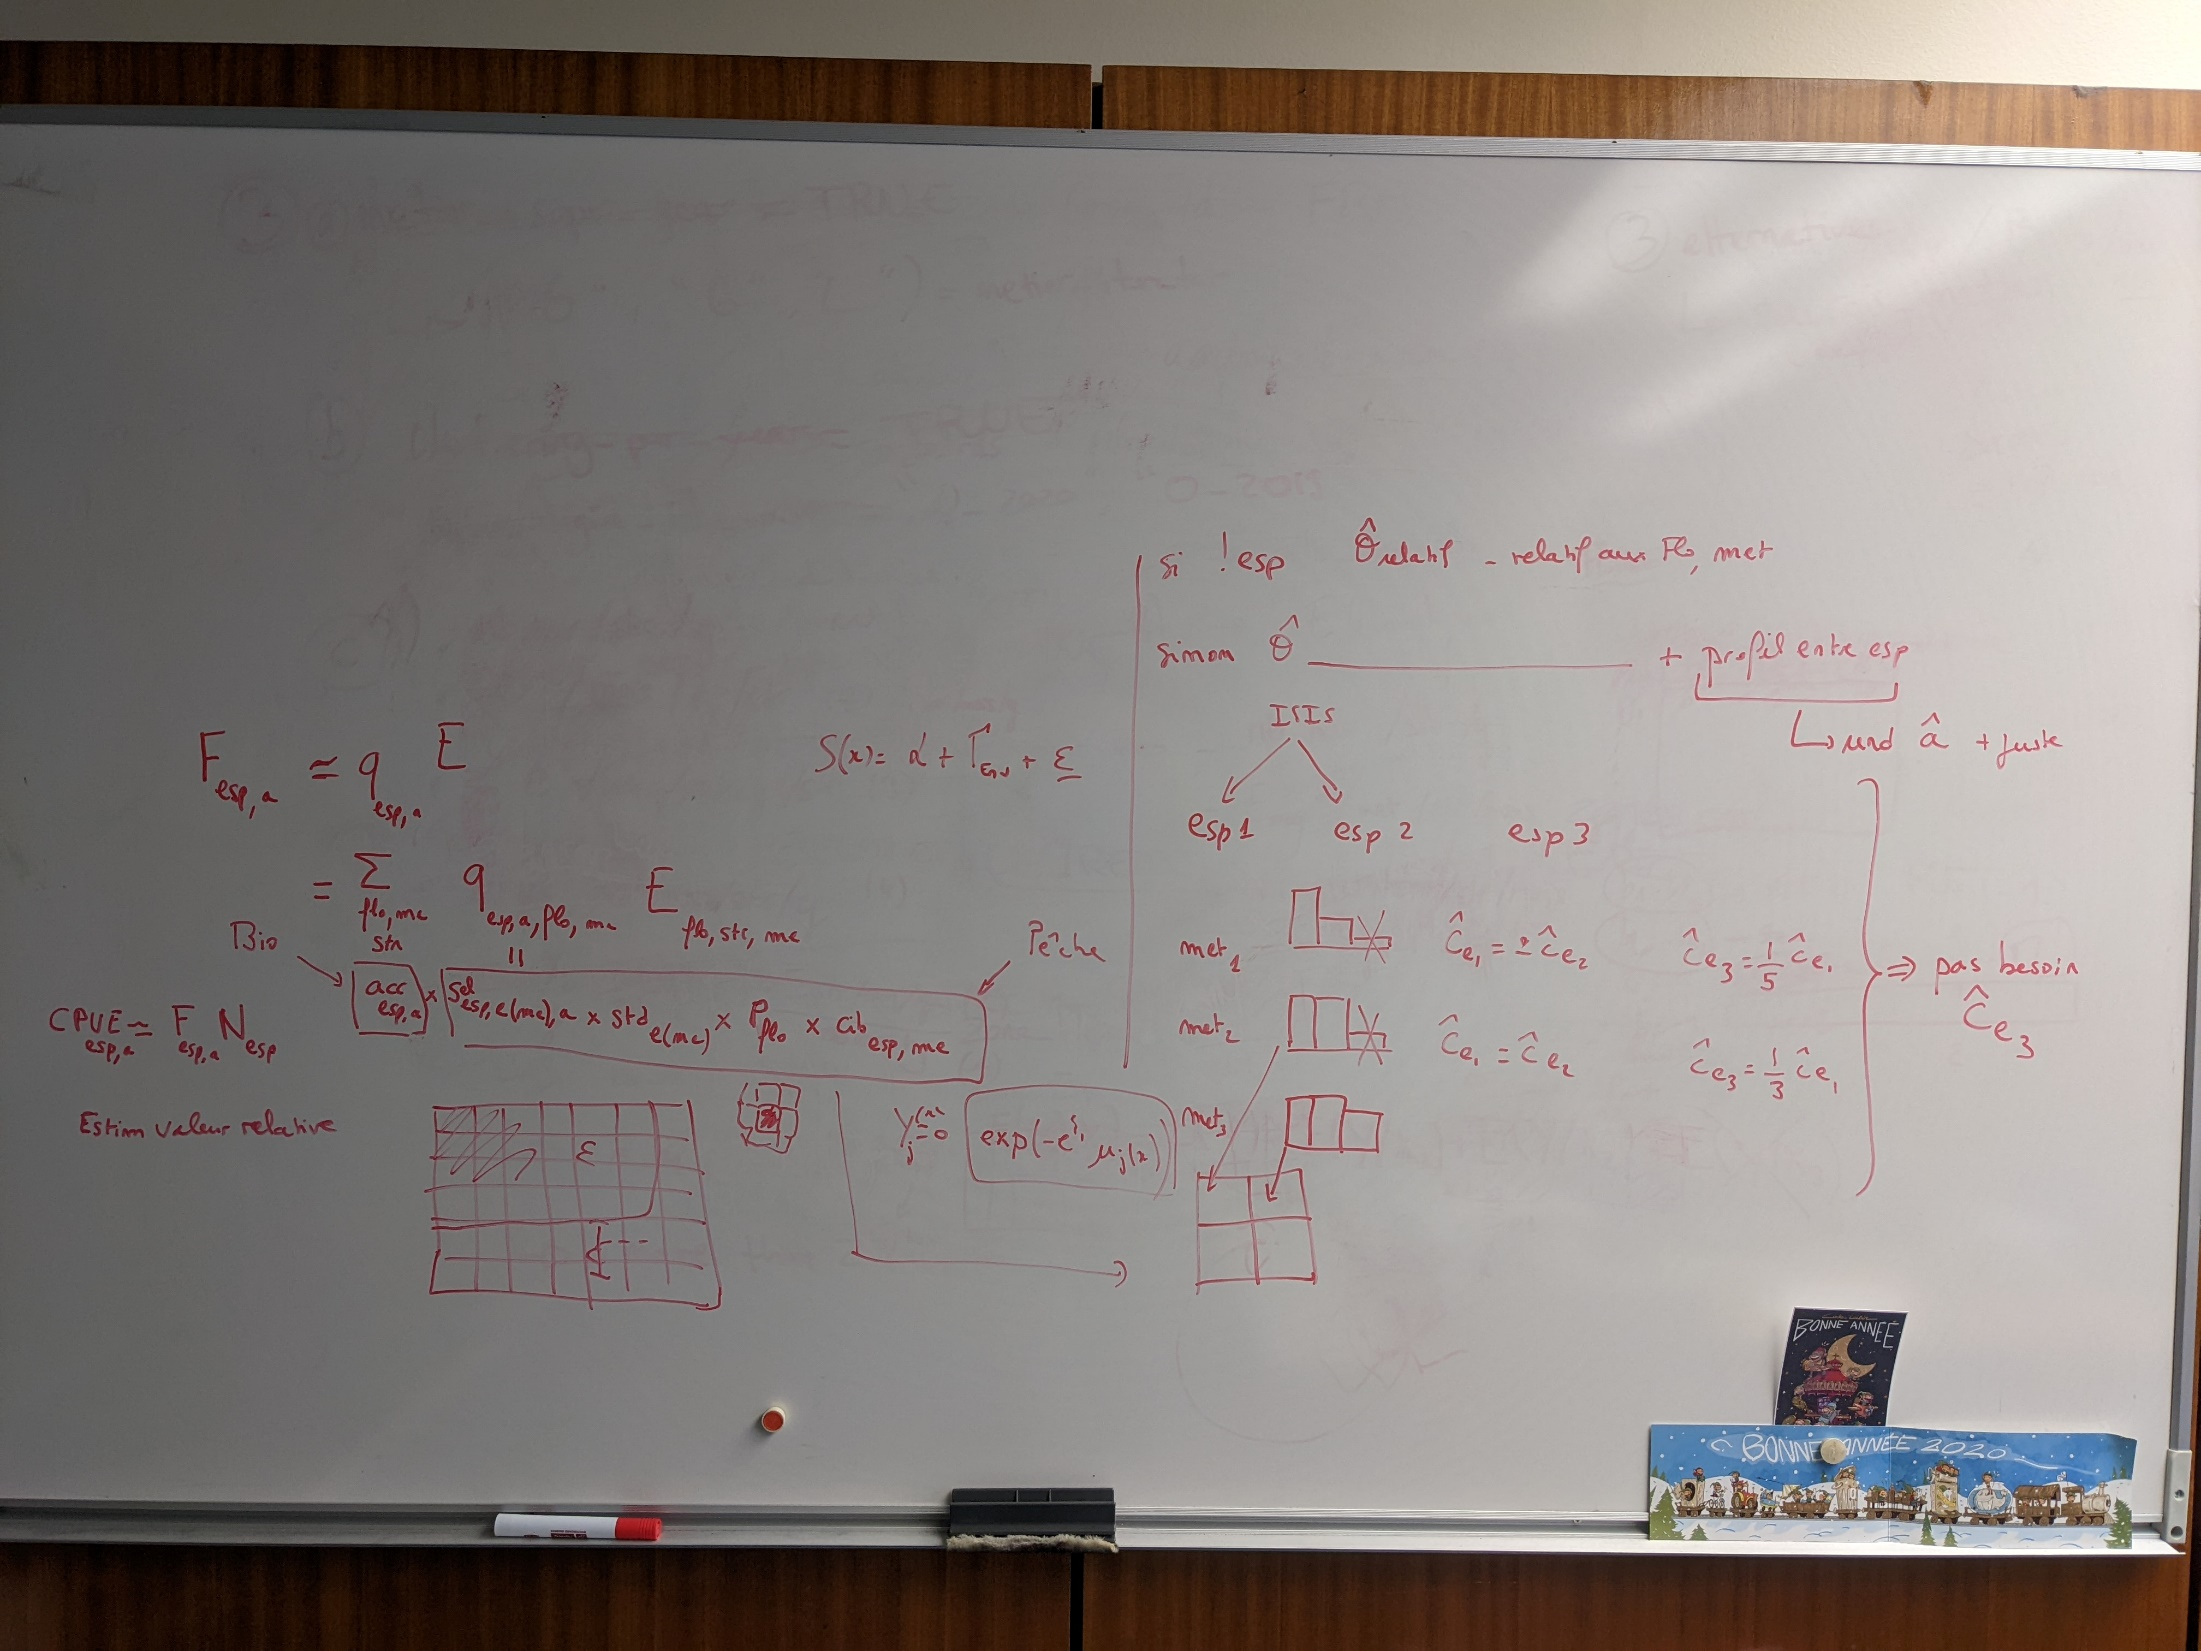 F esp,a ≃ q esp,a E
= Σ flo, me str q esp,a,flo,me E flo,str,me
Bio
Pêche
acc esp,a × Sel esp,e(me),a × Std e(me) × P flo × Cib esp,me
CPUE esp,a ≃ F esp,a N esp
Estim valeur relative
ε
S(x) = α + Γ Env + ε
exp(-e^ξ μj(x))
si !esp θ̂ relatif - relatif aux Flo, met
sinon θ̂ + profil entre esp
↳ rend â + juste
ISIS
esp 1 esp 2 esp 3
met1 Ĉe1 = 2 Ĉe2 Ĉe3 = 1/5 Ĉe1
met2 Ĉe1 = Ĉe2 Ĉe3 = 1/3 Ĉe1
met3
⇒ pas besoin Ĉe3
③ alternative
③ a
TRUE
b)
TRUE
0-2019
BONNE ANNÉE
BONNE ANNÉE 2020